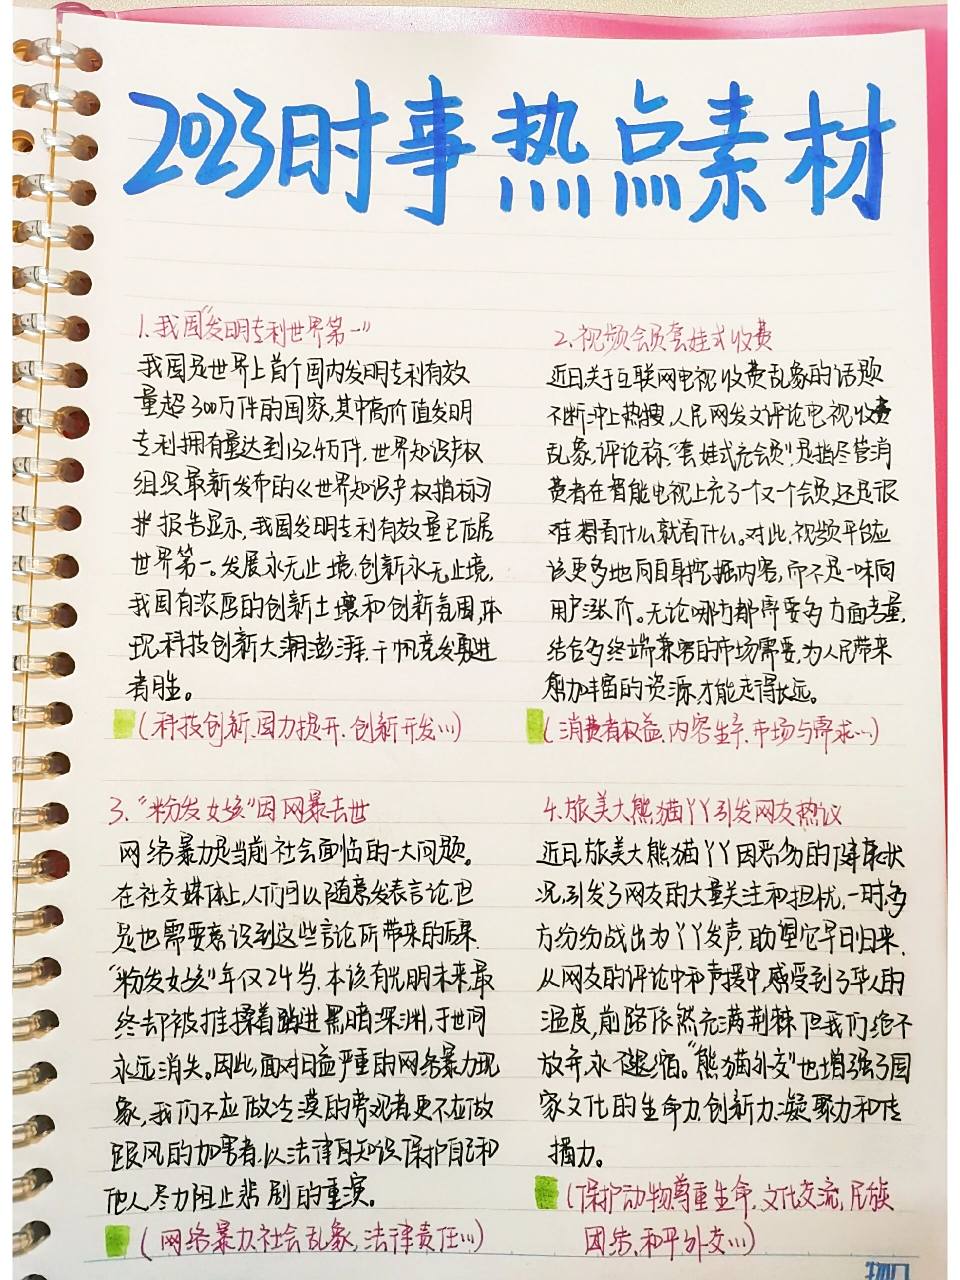 2023时事热点素材
1.我国“发明专利世界第一”
我国是世界上首个国内发明专利有效
量超300万件的国家,其中高价值发明
专利拥有量达到132.4万件,世界知识产权
组织最新发布的《世界知识产权指标》
报告显示,我国发明专利有效量已居
世界第一。发展永无止境,创新永无止境,
我国有浓厚的创新土壤和创新氛围,体
现科技创新大潮澎湃,千帆竞发勇进
者胜。
(科技创新、国力提升、创新开发…)
2.视频会员套娃式收费
近日,关于互联网电视收费乱象的话题
不断冲上热搜,人民网发文评论电视收费
乱象,评论称,“套娃式充会员”,是指尽管消
费者在智能电视上充了一个又一个会员,还是很
难想看什么就看什么。对此,视频平台应
该更多地向自身挖掘内容,而不是一味向
用户涨价。无论哪方都需要多方面考量,
结合多终端兼容的市场需要,为人民带来
愈加丰富的资源,才能走得长远。
(消费者权益、内容生产、市场与需求…)
3.“粉发女孩”因网暴去世
网络暴力是当前社会面临的一大问题。
在社交媒体上,人们可以随意发表言论,但
是也需要意识到这些言论所带来的后果.
“粉发女孩”年仅24岁,本该有光明未来,最
终却被推搡着跌进黑暗深渊,于世间
永远消失。因此,面对日益严重的网络暴力现
象,我们不应做冷漠的旁观者,更不应做
跟风的加害者,以法律知识保护自己和
他人,尽力阻止悲剧的重演。
(网络暴力,社会乱象,法律责任…)
4.旅美大熊猫丫丫引发网友热议
近日,旅美大熊猫丫丫因恶劣的生存状
况,引发了网友的大量关注和担忧,一时,多
方纷纷战出为丫丫发声,盼望它早日归来.
从网友的评论中和声援中,感受到了华人的
温度,前路依然充满荆棘,但我们绝不
放弃,永不退缩。“熊猫外交”也增强了国
家文化的生命力,创新力,凝聚力和传
播力。
(保护动物,尊重生命,文化交流,民族
团结,和平外交…)